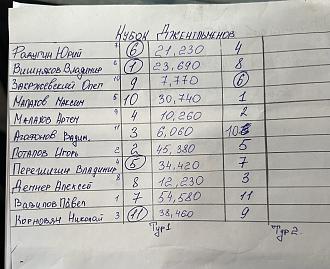 Кубок Джентльменов
Радугин Юрий 7 6 21,230 4
Вишняков Владимир 6 1 23,690 8
Закржевский Олег 10 9 7,770 6
Малахов Максим 5 10 30,740 1
Малахов Артём 9 4 10,260 2
Агафонов Вадим. 11 3 6,060 10
Потапов Игорь 2 2 45,380 5
Перепилица Владимир 4 5 34,420 7
Депнер Алексей 8 8 12,230 3
Вавилов Павел 1 7 54,580 11
Корновян Николай 3 11 38,460 9
Тур1 Тур2.